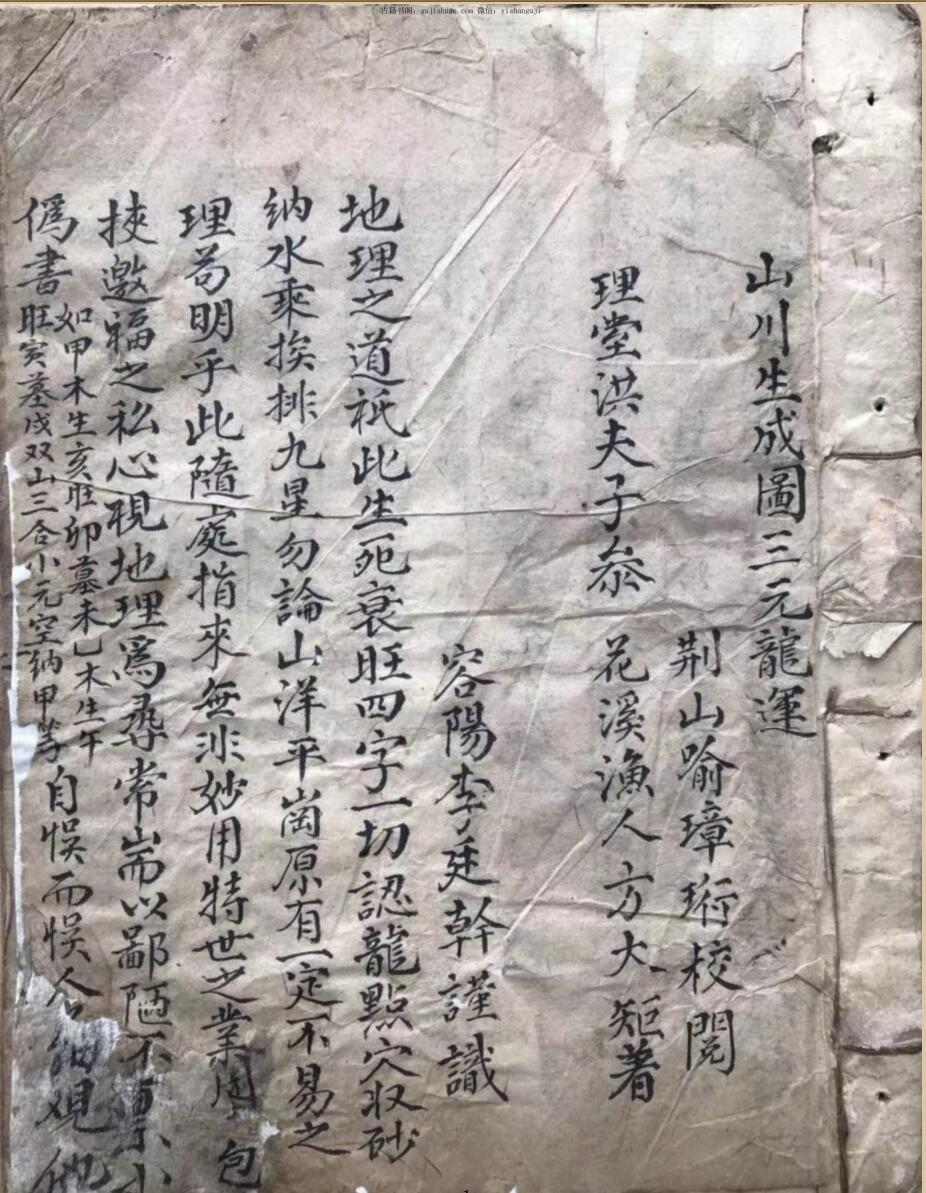 古籍书阁：gujishuge.com 微信：yishanguji
山川生成圖三元龍運
荆山喻璋珩校閱
理堂洪夫子叅 花溪漁人方大矩著
容陽李廷幹謹識
地理之道祗此生死衰旺四字一切認龍點穴収砂
納水乘挨排九星勿論山洋平崗原有一定不易之
理茍明乎此隨處指來無非妙用特世之業 包
挾邀福之私心視地理爲尋常而以鄙陋不
僞書
如甲木生亥旺卯墓未乙木生午
旺寅墓戌双山三合小元空納甲等
自悞而悞人 觀他